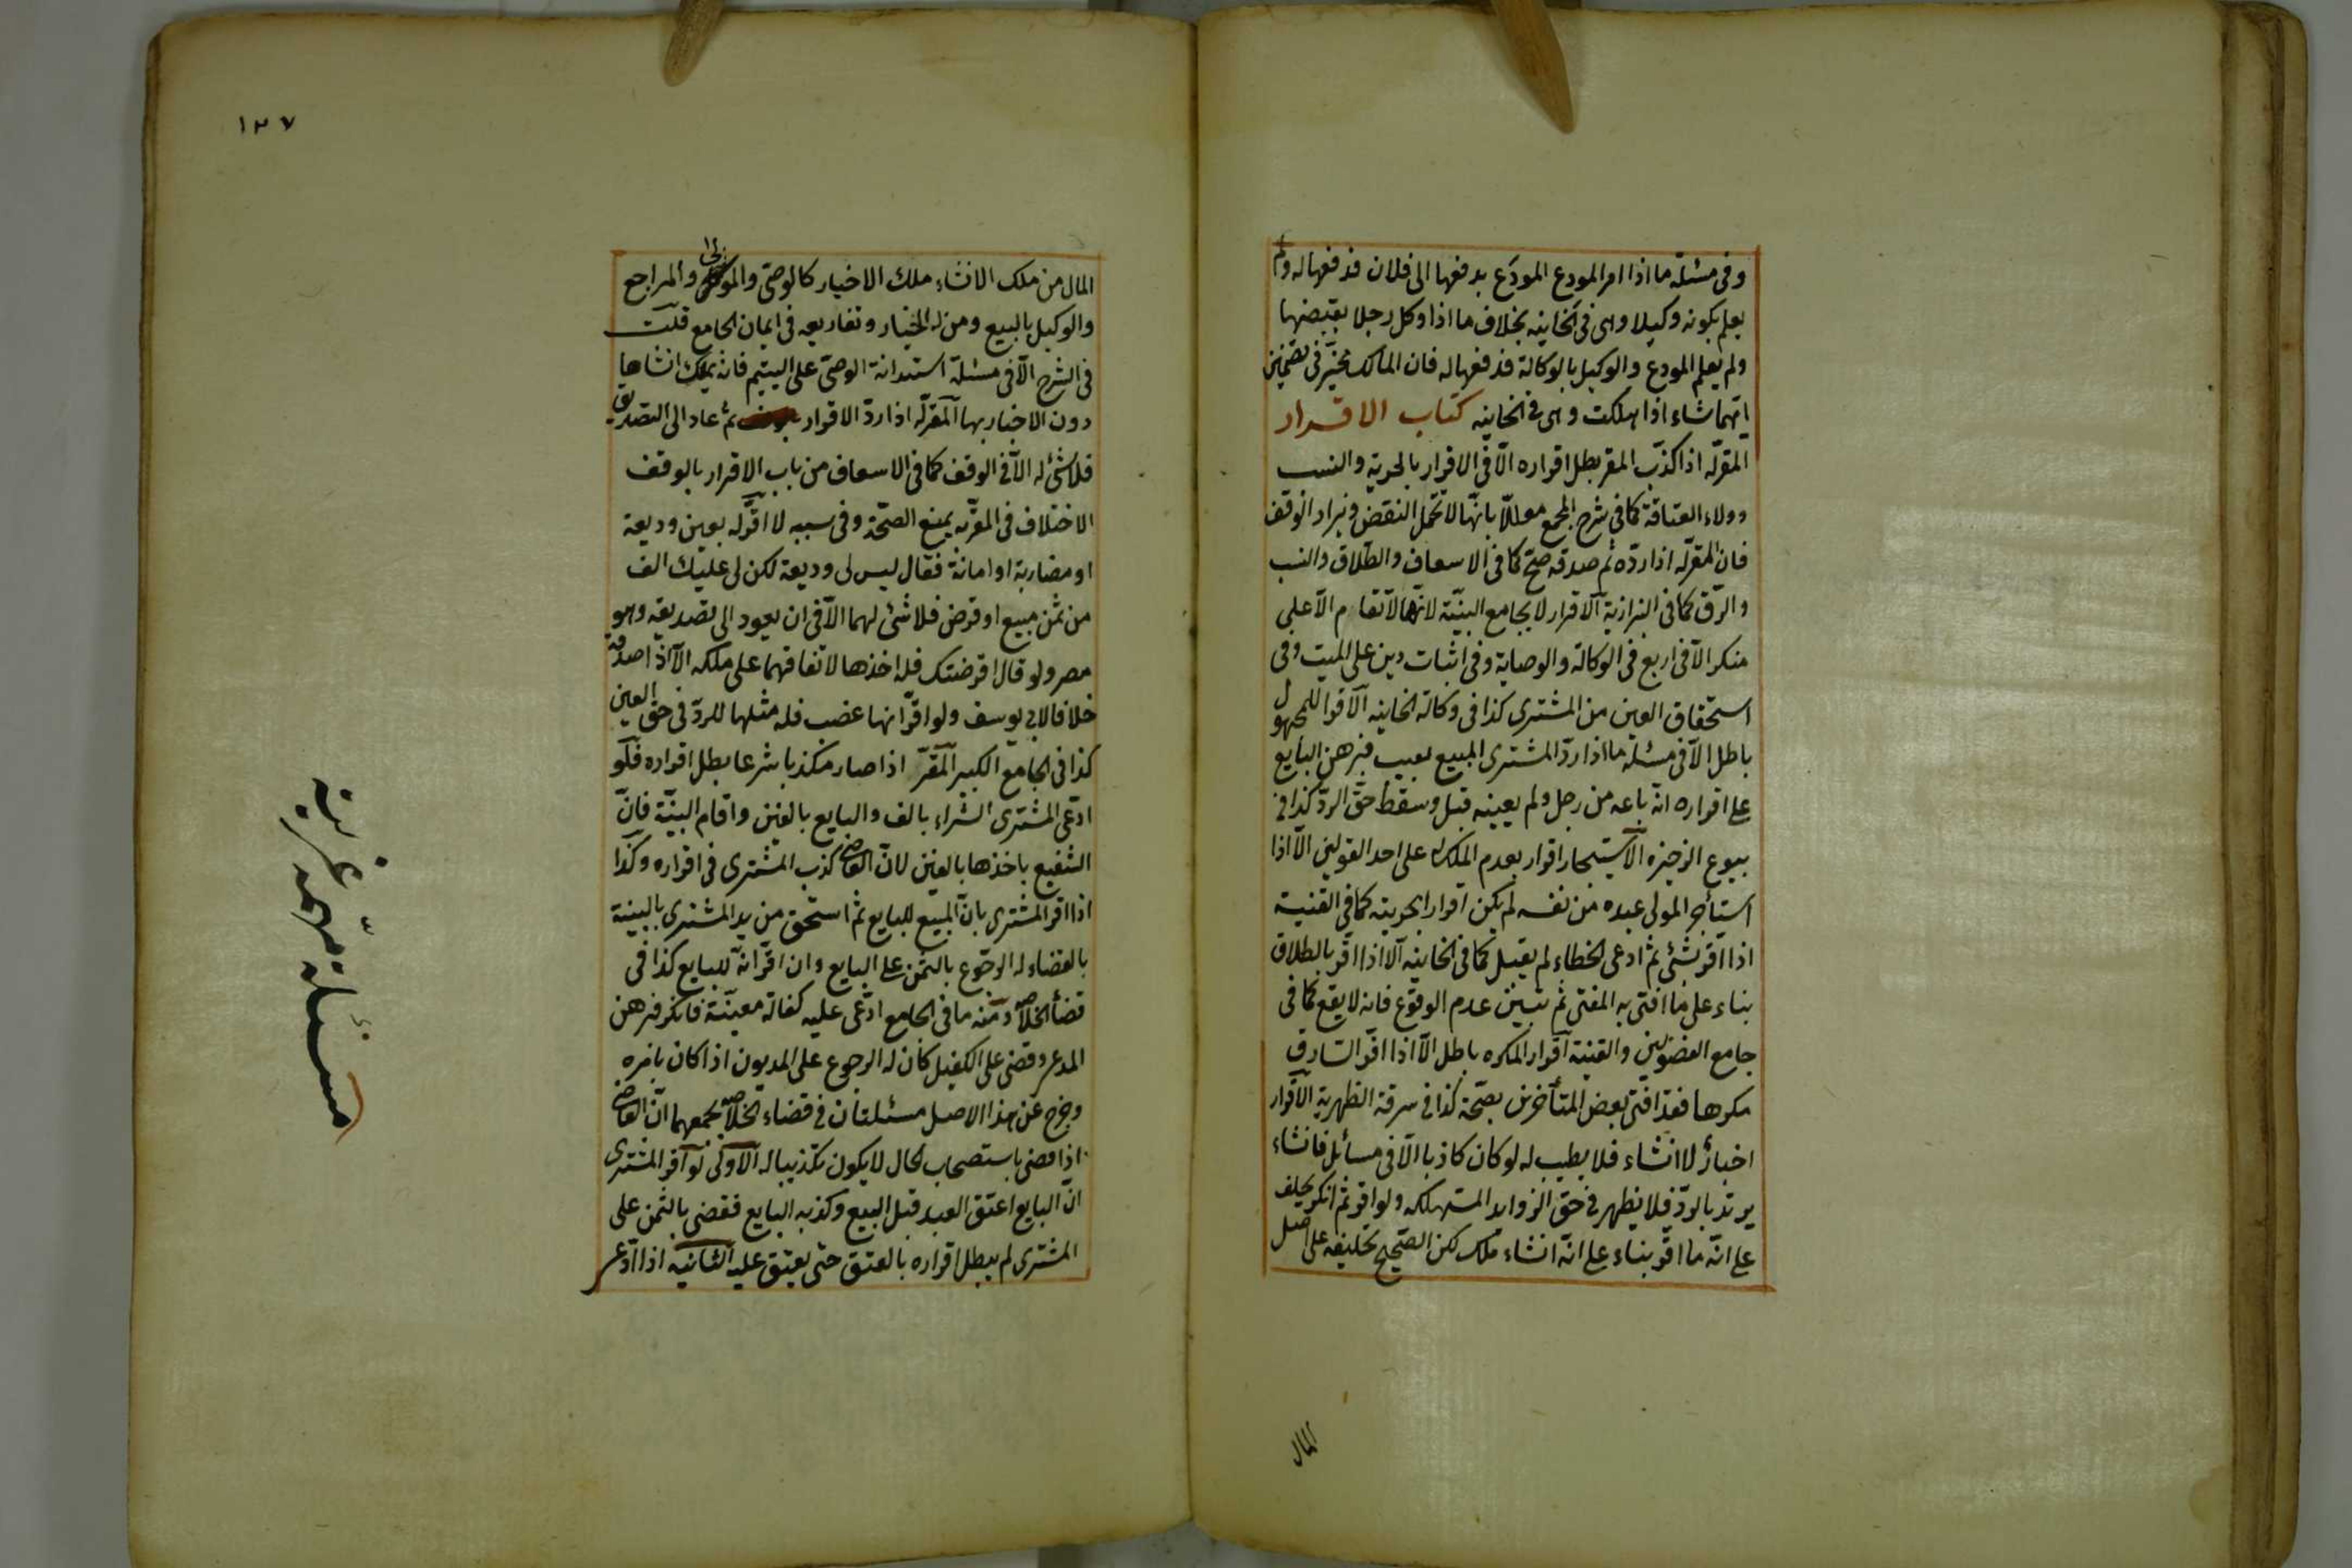 وفى مسئلة ما اذا امر المودع المودَع بدفعها الى فلان فدفعها له ولم
يعلم بكونه وكيلا وهى فى الخانيه بخلاف ما اذا وكل رجلا بقبضها
ولم يعلم المودع والوكيل بالوكالة فدفعها له فان المالك مخيّر فى تضمين
ايّهما شاء اذا هلكت وهى فى الخانيه كتاب الاقرار
المقرّله اذا كذّب المقر بطل اقراره الّا فى الاقرار بالحرية والنسب
وولاء العتاقة كما فى شرح المجمع معللّا بانّها لا تحمل النقض ويزاد الوقف
فان المقرّله اذا ردّه ثم صدقه صحّ كما فى الاسعاف والطلاق والنسب
والرّق كما فى البزازية الاقرار لا يجامع البيّنة لانها لا تقام الّا على
منكر الّا فى اربع فى الوكالة والوصاية وفى اثبات دين على الميت وفى
استحقاق العين من المشترى كذا فى وكالة الخانيه الاقرار للمجهول
باطل الّا فى مسئلة ما اذا ردّ المشترى المبيع بعيب فبرهن البايع
على اقراره انّه باعه من رجل ولم يعينه قبل وسقط حقّ الردّ كذا فى
بيوع الذخيره الاستيجار اقرار بعدم الملك له على احد القولين الّا اذا
استأجر المولى عبده من نفسه لم يكن اقرارا بحريته كما فى القنية
اذا اقر بشئ ثم ادعى الخطاء لم يقبل كما فى الخانيه الا اذا اقر بالطلاق
بناء على ما افتى به المفتى ثم تبين عدم الوقوع فانه لا يقع كما فى
جامع الفصولين والقنية اقرار المكره باطل الّا اذا اقر السارق
مكرها فقد افتى بعض المتأخرين بصحّته كذا فى سرقة الظهرية الاقرار
اخبار لا انشاء فلا يطيب له لو كان كاذبا الّا فى مسائل فانشاء
يرتد بالردّ فلا يظهر فى حقّ الزوايد المستهلكه ولو اقر ثم انكر يحلف
على انّه ما اقر بناء على انّه انشاء ملك لكن الصّحيح تحليفه على اصل
المال
١٢٧
المال من ملك الانشاء ملك الاخبار كالوصىّ والمولى والمراجع
والوكيل بالبيع ومن له الخيار وتفاريعه فى ايمان الجامع قلت
فى الشرح الّا فى مسئلة استدانة الوصىّ على اليتيم فانه يملك انشاها
دون الاخبار بها المقرّله اذا ردّ الاقرار ثم عاد الى التصديق
فلا شئ له الّا فى الوقف كما فى الاسعاف من باب الاقرار بالوقف
الاختلاف فى المقرّبه يمنع الصّحّة وفى سببه لا اقرّ له بعين وديعة
او مضاربة او امانة فقال ليس لى وديعة لكن لى عليك الف
من ثمن مبيع او قرض فلا شئ لهما الّا فى ان يعود الى تصديقه وهو
مصر ولو قال اقرضتك فله اخذها لاتفاقهما على ملكه الّا اذا صدقه
خلافا لابى يوسف ولو اقرّ انها غصب فله مثلها للردّ فى حق العين
كذا فى الجامع الكبير المقرّ اذا صار مكذبا شرعا بطل اقراره فلو
ادّعى المشترى الشراء بالف والبايع بالفين واقام البيّنة فانّ
الشفيع ياخذها بالفين لانّ القاضى كذب المشترى فى اقراره وكذا
اذا اقر المشترى بانّ المبيع للبايع ثم استحق من يد المشترى بالبينة
بالقضاء له الرجوع بالثمن على البايع وان اقرّ انه للبايع كذا فى
قضاء الخلاصه ومنه ما فى الجامع ادّعى عليه كفالة معيّنة فانكر فبرهن
المدعى وقضى على الكفيل كان له الرجوع على المديون اذا كان بامره
وخرج عن هذا الاصل مسئلتان فى قضاء الخلاصه يجمعهما انّ القاضى
اذا قضى باستصحاب الحال لا يكون تكذيبا له الاولى لو اقر المشترى
انّ البايع اعتق العبد قبل البيع وكذبه البايع فقضى بالثمن على
المشترى لم يبطل اقراره بالعتق حتّى يعتق عليه الثانيه اذا ادّعى